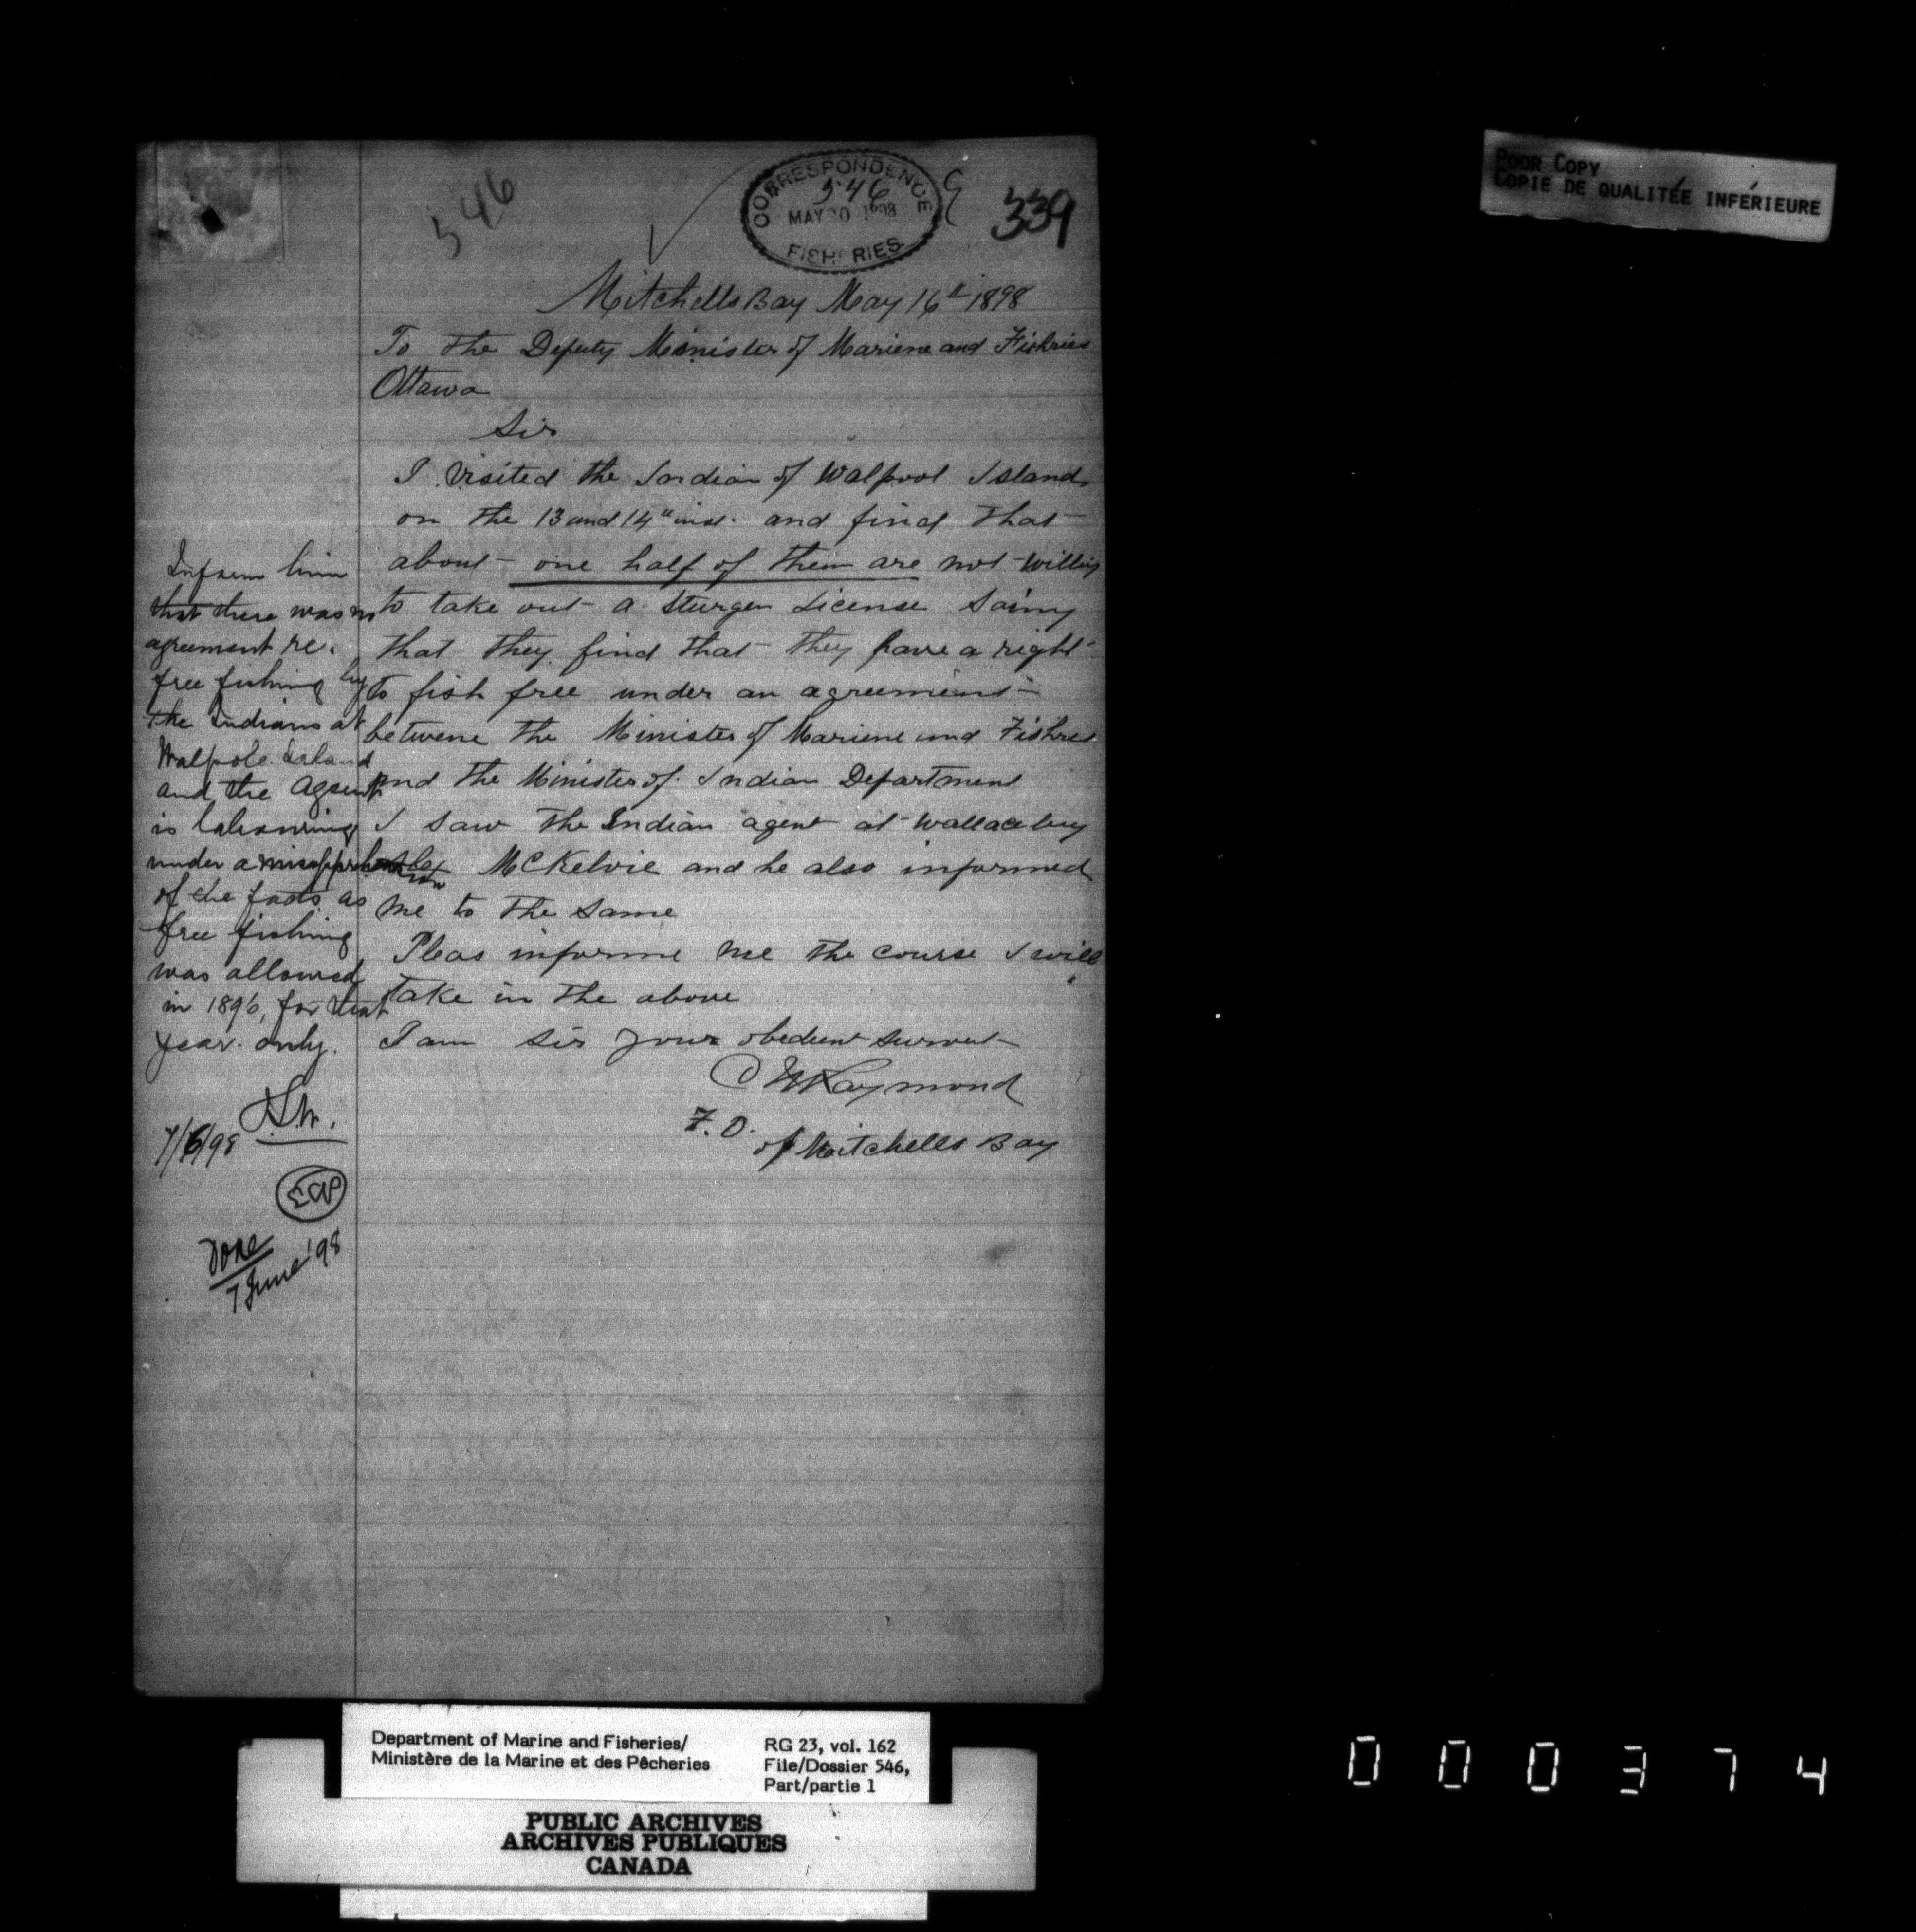 POOR COPY
COPIE DE QUALITÉE INFÉRIEURE
546
CORRESPONDENCE
546
MAY 20 1898
FISHERIES
339
Mitchells Bay May 16th 1898
To the Deputy Minister of Mariene and Fishries
Ottawa
Sir
I visited the Indian of Walpool Island
on the 13 and 14th inst. and find that
about one half of them are not willing
to take out a Sturgen License Saing
that they find that they have a right
to fish free under an agreement
betwene the Minister of Mariene and Fishres
and the Minister of Indian Department
I saw the Indian agent at Wallaceburg
McKelvie and he also informed
me to the same
Pleas informe me the course I will
take in the above
I am Sir your obedient servent
Raymond
F.O.
of Mitchells Bay
Inform him
that there was no
agreement re.
free fishing by
the Indians at
Walpole Island
and the Agent
is labouring
under a misapprehension
of the facts as
free fishing
was allowed
in 1896, for that
year only.
7/6/98
Done
7 June '98
Department of Marine and Fisheries/
Ministère de la Marine et des Pêcheries
RG 23, vol. 162
File/Dossier 546,
Part/partie 1
PUBLIC ARCHIVES
ARCHIVES PUBLIQUES
CANADA
000374